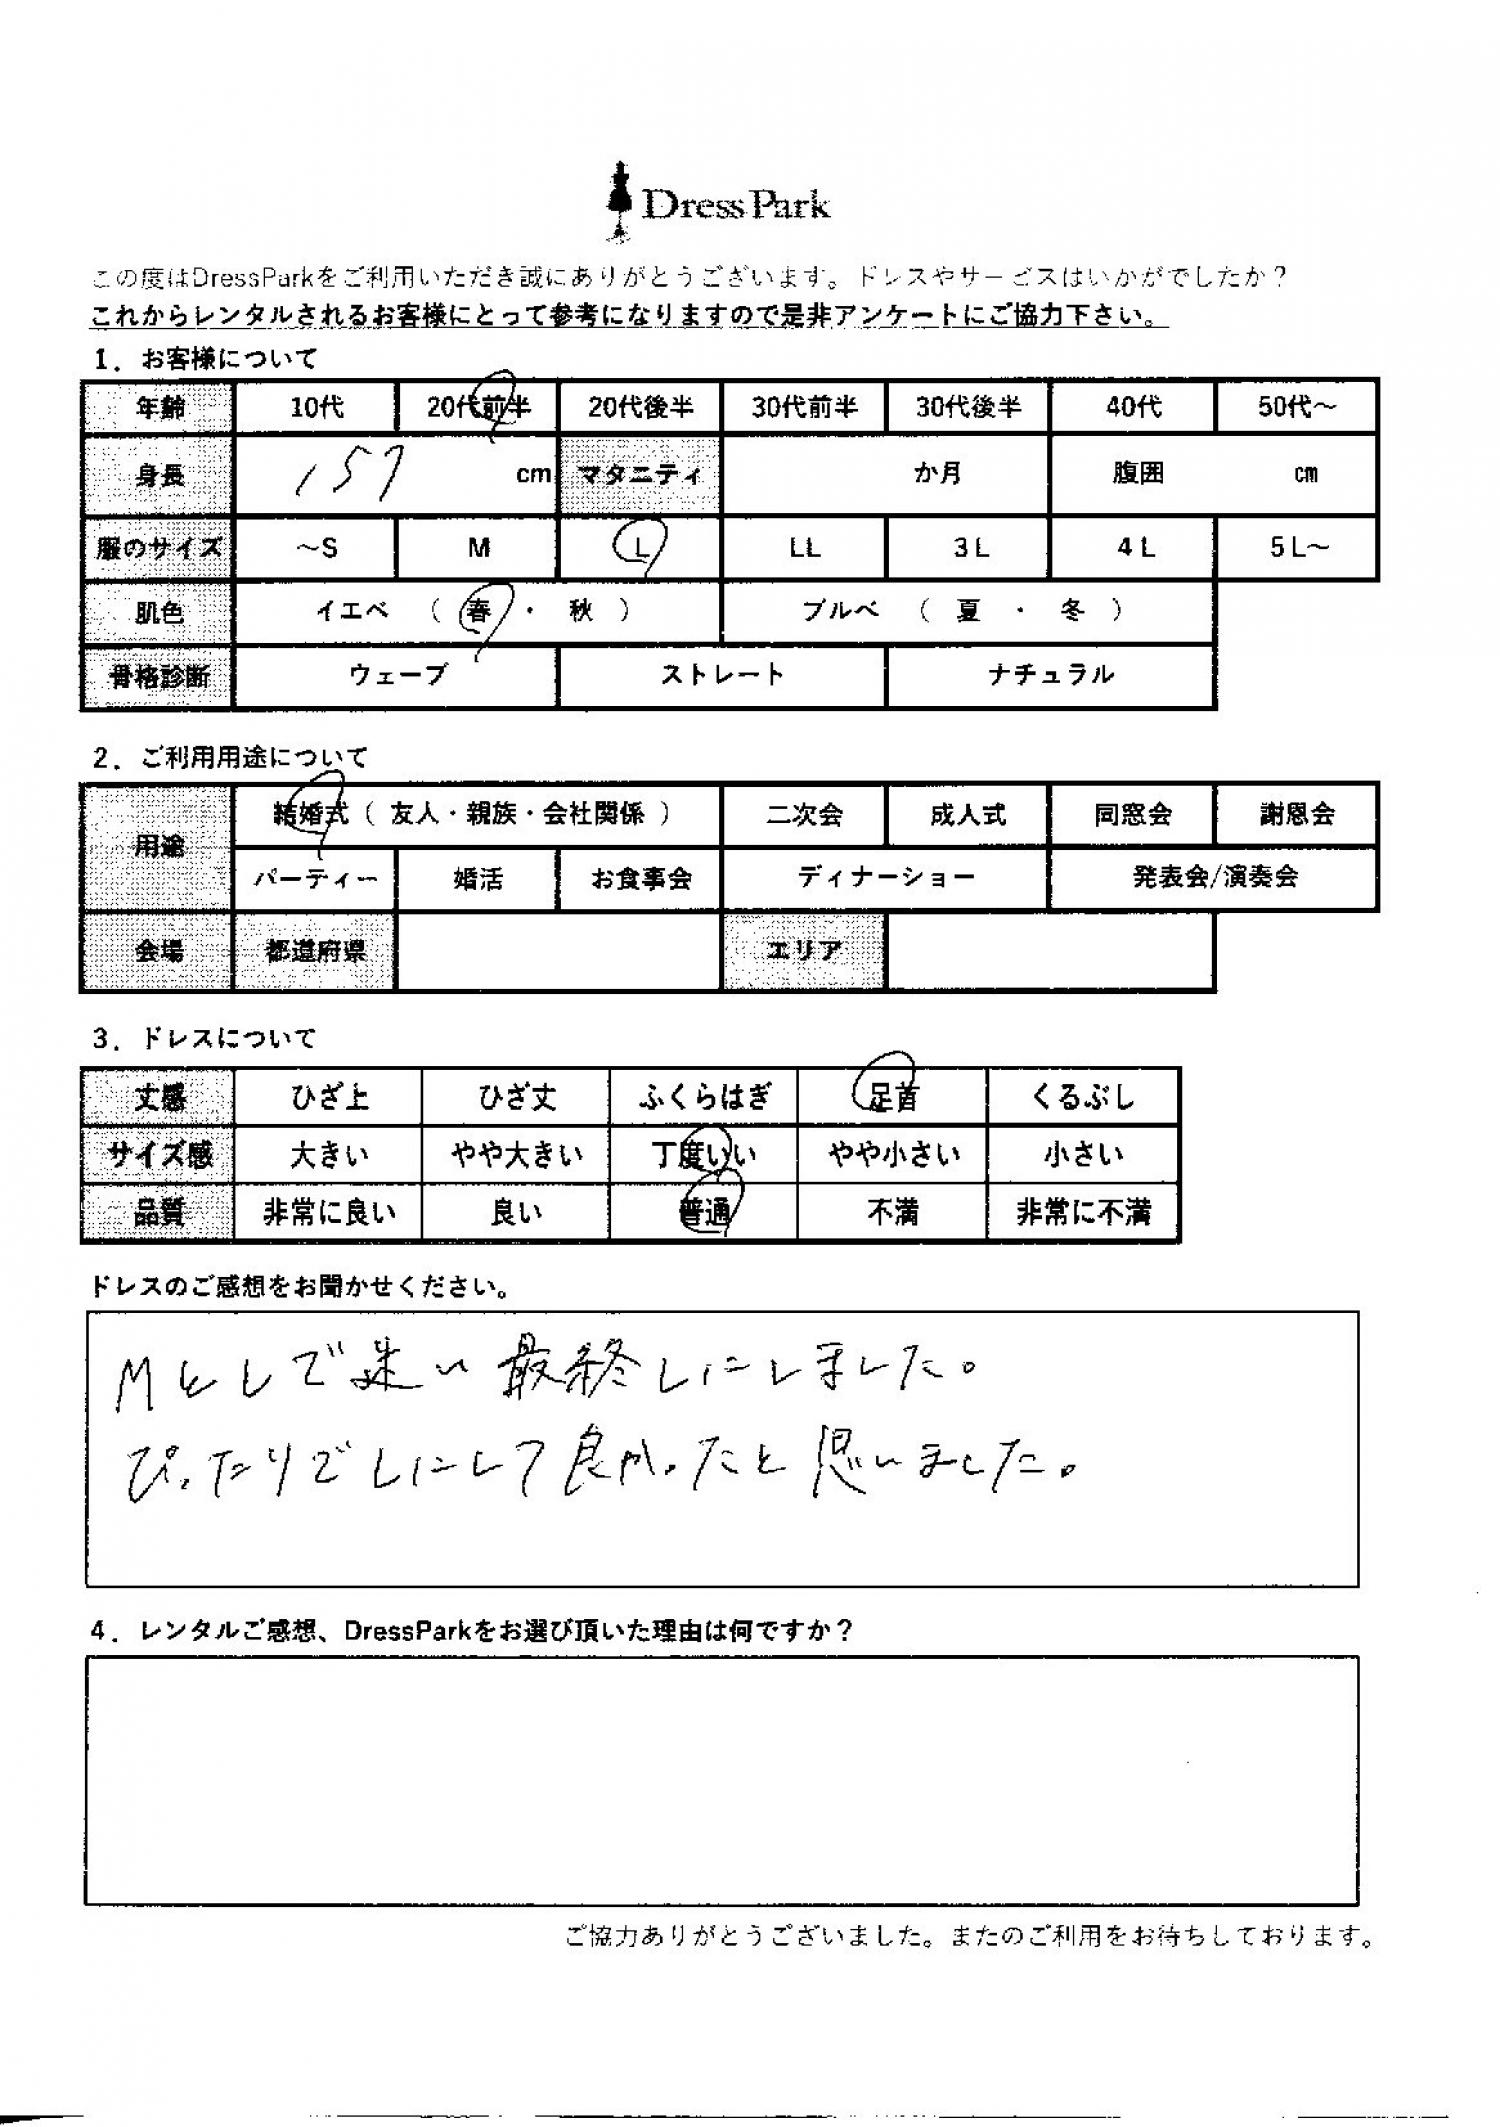 DressPark
この度はDressParkをご利用いただき誠にありがとうございます。ドレスやサービスはいかがでしたか？
これからレンタルされるお客様にとって参考になりますので是非アンケートにご協力下さい。
1．お客様について
年齢 10代 20代前半 20代後半 30代前半 30代後半 40代 50代～
身長 157 cm マタニティ か月 腹囲 cm
服のサイズ ～S M L LL 3L 4L 5L～
肌色 イエベ （ 春 ・ 秋 ） ブルベ （ 夏 ・ 冬 ）
骨格診断 ウェーブ ストレート ナチュラル
2．ご利用用途について
用途 結婚式（ 友人・親族・会社関係 ） 二次会 成人式 同窓会 謝恩会
パーティー 婚活 お食事会 ディナーショー 発表会/演奏会
会場 都道府県 エリア
3．ドレスについて
丈感 ひざ上 ひざ丈 ふくらはぎ 足首 くるぶし
サイズ感 大きい やや大きい 丁度いい やや小さい 小さい
品質 非常に良い 良い 普通 不満 非常に不満
ドレスのご感想をお聞かせください。
MとLで迷い最終Lにしました。
ぴったりでLにして良かったと思いました。
4．レンタルご感想、DressParkをお選び頂いた理由は何ですか？
ご協力ありがとうございました。またのご利用をお待ちしております。